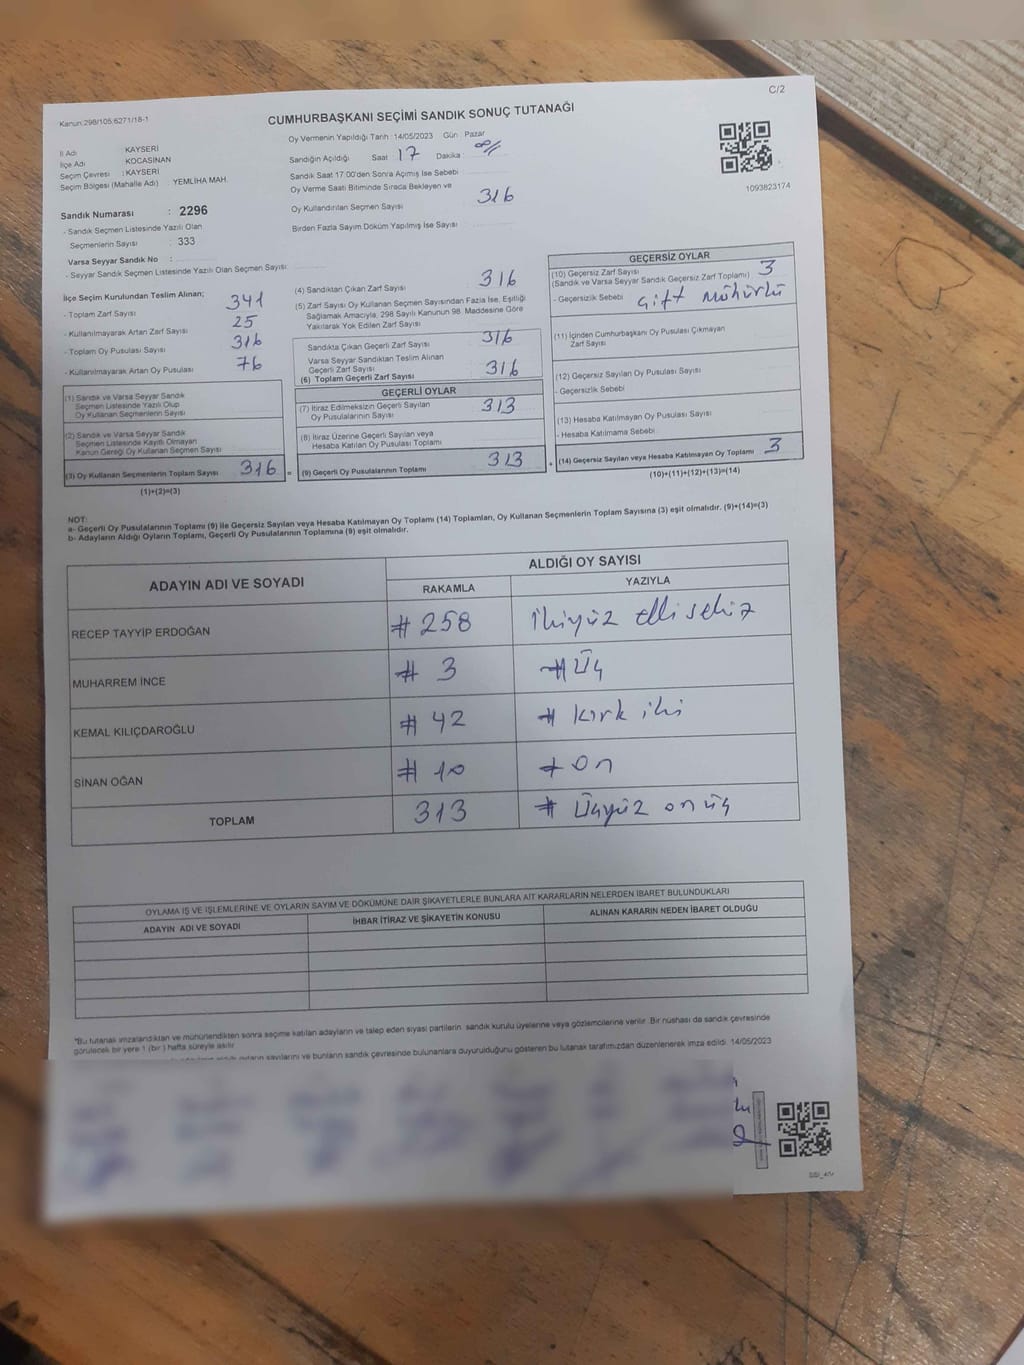 C/2
Kanun:298/105,6271/18-1
CUMHURBAŞKANI SEÇİMİ SANDIK SONUÇ TUTANAĞI
İl Adı : KAYSERİ
İlçe Adı : KOCASİNAN
Seçim Çevresi : KAYSERİ
Seçim Bölgesi (Mahalle Adı) : YEMLİHA MAH.
Sandık Numarası : 2296
- Sandık Seçmen Listesinde Yazılı Olan
Seçmenlerin Sayısı : 333
Varsa Seyyar Sandık No :
- Seyyar Sandık Seçmen Listesinde Yazılı Olan Seçmen Sayısı:
Oy Vermenin Yapıldığı Tarih : 14/05/2023 Gün : Pazar
Sandığın Açıldığı Saat 17 Dakika :
Sandık Saat 17:00'den Sonra Açımış İse Sebebi
Oy Verme Saati Bitiminde Sırada Bekleyen ve
Oy Kullandırılan Seçmen Sayısı 316
Birden Fazla Sayım Döküm Yapılmış İse Sayısı
1093823174
İlçe Seçim Kurulundan Teslim Alınan;
- Toplam Zarf Sayısı 341
- Kullanılmayarak Artan Zarf Sayısı 25
- Toplam Oy Pusulası Sayısı 316
- Kullanılmayarak Artan Oy Pusulası 76
(1) Sandık ve Varsa Seyyar Sandık
Seçmen Listesinde Yazılı Olup
Oy Kullanan Seçmenlerin Sayısı
(2) Sandık ve Varsa Seyyar Sandık
Seçmen Listesinde Kayıtlı Olmayan
Kanun Gereği Oy Kullanan Seçmen Sayısı
(3) Oy Kullanan Seçmenlerin Toplam Sayısı 316 =
(1)+(2)=(3)
(4) Sandıktan Çıkan Zarf Sayısı : 316
(5) Zarf Sayısı Oy Kullanan Seçmen Sayısından Fazla İse, Eşitliği
Sağlamak Amacıyle, 298 Sayılı Kanunun 98. Maddesine Göre
Yakılarak Yok Edilen Zarf Sayısı :
Sandıkta Çıkan Geçerli Zarf Sayısı : 316
Varsa Seyyar Sandıktan Teslim Alınan
Geçerli Zarf Sayısı : 316
(6) Toplam Geçerli Zarf Sayısı
GEÇERLİ OYLAR
(7) İtiraz Edilmeksizin Geçerli Sayılan
Oy Pusulalarının Sayısı 313
(8) İtiraz Üzerine Geçerli Sayılan veya
Hesaba Katılan Oy Pusulası Toplamı
(9) Geçerli Oy Pusulalarının Toplamı 313 +
GEÇERSİZ OYLAR
(10) Geçersiz Zarf Sayısı 3
(Sandık ve Varsa Seyyar Sandık Geçersiz Zarf Toplamı)
- Geçersizlik Sebebi : Çift mühürlü
(11) İçinden Cumhurbaşkanı Oy Pusulası Çıkmayan
Zarf Sayısı
(12) Geçersiz Sayılan Oy Pusulası Sayısı
- Geçersizlik Sebebi
(13) Hesaba Katılmayan Oy Pusulası Sayısı
- Hesaba Katılmama Sebebi :
(14) Geçersiz Sayılan veya Hesaba Katılmayan Oy Toplamı 3
(10)+(11)+(12)+(13)=(14)
NOT:
a- Geçerli Oy Pusulalarının Toplamı (9) ile Geçersiz Sayılan veya Hesaba Katılmayan Oy Toplamı (14) Toplamları, Oy Kullanan Seçmenlerin Toplam Sayısına (3) eşit olmalıdır. (9)+(14)=(3)
b- Adayların Aldığı Oyların Toplamı, Geçerli Oy Pusulalarının Toplamına (9) eşit olmalıdır.
ADAYIN ADI VE SOYADI ALDIĞI OY SAYISI
RAKAMLA YAZIYLA
RECEP TAYYİP ERDOĞAN # 258 ikiyüz elli sekiz
MUHARREM İNCE # 3 # Üç
KEMAL KILIÇDAROĞLU # 42 # kırk iki
SİNAN OĞAN # 10 # on
TOPLAM 313 # Üçyüz on üç
OYLAMA İŞ VE İŞLEMLERİNE VE OYLARIN SAYIM VE DÖKÜMÜNE DAİR ŞİKAYETLERLE BUNLARA AİT KARARLARIN NELERDEN İBARET BULUNDUKLARI
ADAYIN ADI VE SOYADI İHBAR İTİRAZ VE ŞİKAYETİN KONUSU ALINAN KARARIN NEDEN İBARET OLDUĞU
*Bu tutanak imzalandıktan ve mühürlendikten sonra seçime katılan adayların ve talep eden siyasi partilerin sandık kurulu üyelerine veya gözlemcilerine verilir. Bir nüshası da sandık çevresinde
görülecek bir yere 1 (bir ) hafta süreyle asılır.
oyların sayılarını ve bunların sandık çevresinde bulunanlara duyurulduğunu gösteren bu tutanak tarafımızdan düzenlenerek imza edildi. 14/05/2023